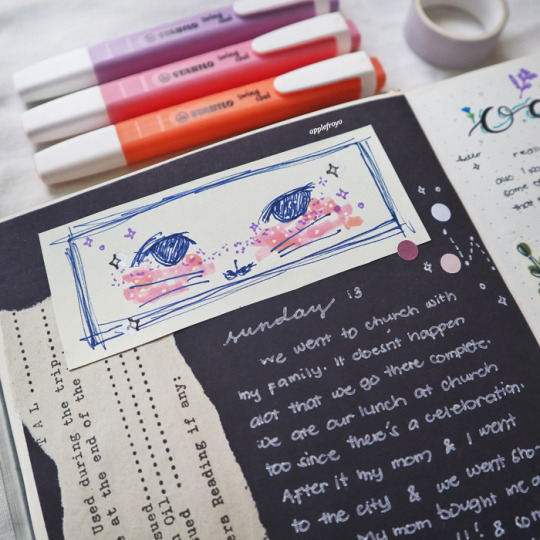 STABILO swing cool
STABILO swing cool
STABILO swing cool
applefroyo
sunday is
we went to church with
my family. It doesn't happen
alot that we go there complete.
we are our lunch at church
too since there's a celebration.
After it my mom & I went
to the city & we went sho
My mom bought me a
!! & com
TAL
Used during the trip
at the end of the
sued
n Oil
ued
ers Reading if any.
hello